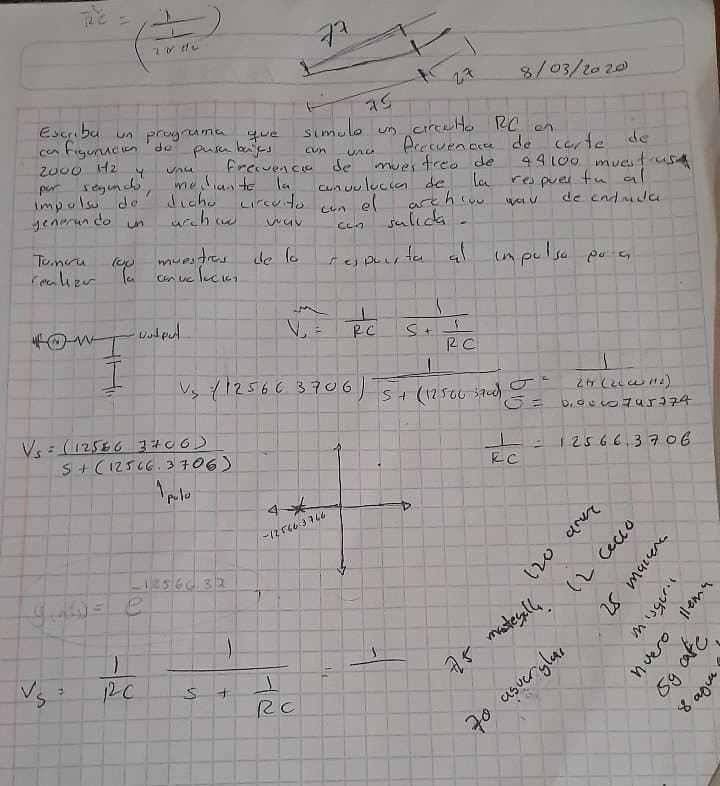 1/RC = (1 / (1 / 2π Hz))
77
27
75
8/03/2020
Escriba un programa que simule un circuito RC en
configuracion de pasa bajas con una frecuencia de corte de
2000 Hz y una frecuencia de muestreo de 44100 muestras
por segundo, mediante la convolucion de la respuesta al
impulso de dicho circuito con el archivo wav de entrada
generando un archivo wav con salida.
Tomar 100 muestras de la respuesta al impulso para
realizar la convolucion
output
Vs = 1/RC 1/(S + 1/RC)
Vs = (12566.3706) 1/(S + (12566.3706))
σ = 1/(2π(2000Hz))
σ = 0.0000795774
1/RC = 12566.3706
Vs = (12566.3706)/(S + (12566.3706))
polo
-12566.3706
= e^-12566.37
Vs = 1/RC 1/(s + 1/RC) = 1
120
12
25
75
70
huevo
5g cafe
8 agua